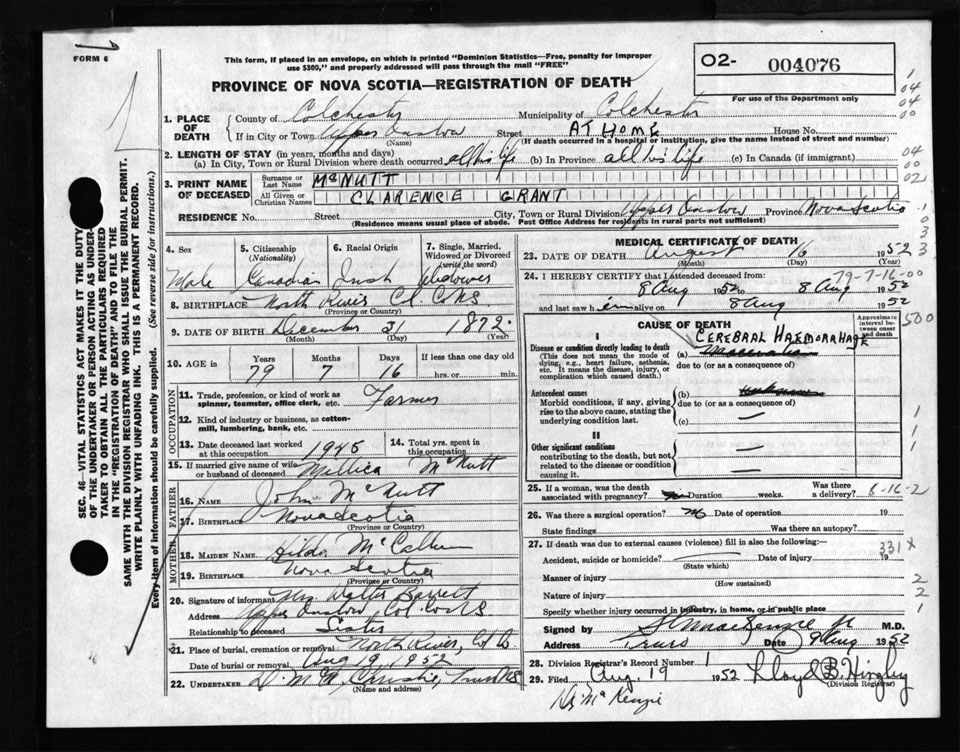 FORM 6
This form, if placed in an envelope, on which is printed "Dominion Statistics—Free, penalty for improper
use $300," and properly addressed will pass through the mail "FREE"
O2- 004076
For use of the Department only
PROVINCE OF NOVA SCOTIA—REGISTRATION OF DEATH
1. PLACE OF DEATH
County of Colchester Municipality of Colchester
If in City or Town Upper Onslow Street AT HOME House No.
(Name) (If death occurred in a hospital or institution, give the name instead of street and number)
2. LENGTH OF STAY (in years, months and days)
(a) In City, Town or Rural Division where death occurred all his life (b) In Province all his life (c) In Canada (if immigrant)
3. PRINT NAME OF DECEASED
Surname or Last Name McNUTT
All Given or Christian Names CLARENCE GRANT
RESIDENCE No. Street City, Town or Rural Division Upper Onslow Province Nova Scotia
(Residence means usual place of abode. Post Office Address for residents in rural parts not sufficient)
4. Sex 5. Citizenship (Nationality) 6. Racial Origin 7. Single, Married, Widowed or Divorced (write the word)
Male Canadian Irish Widower
8. BIRTHPLACE North River Col. Co. N.S
(Province or Country)
9. DATE OF BIRTH December 31 1872
(Month) (Day) (Year)
10. AGE Years Months Days If less than one day old
79 7 16 hrs. or min.
OCCUPATION
11. Trade, profession, or kind of work as spinner, teamster, office clerk, etc. Farmer
12. Kind of industry or business, as cotton-mill, lumbering, bank, etc.
13. Date deceased last worked at this occupation 1945 14. Total yrs. spent in this occupation
15. If married give name of wife or husband of deceased McNutt
FATHER
16. NAME John McNutt
17. BIRTHPLACE Nova Scotia
(Province or Country)
MOTHER
18. MAIDEN NAME Hilda McCallum
19. BIRTHPLACE Nova Scotia
(Province or Country)
20. Signature of informant Mrs. Walter Barrett
Address Upper Onslow Col. Co. N.S
Relationship to deceased Sister
21. Place of burial, cremation or removal North River, Col Co
Date of burial or removal Aug 19, 1952
22. UNDERTAKER Christie, Truro N.S
(Name and address)
MEDICAL CERTIFICATE OF DEATH
23. DATE OF DEATH August 16 1952
(Month) (Day) (Year)
24. I HEREBY CERTIFY that I attended deceased from: 79-7-16-00
8 Aug 1952 to 8 Aug 1952
and last saw him alive on 8 Aug 1952
CAUSE OF DEATH
Approximate interval between onset and death
I
Disease or condition directly leading to death
(This does not mean the mode of dying, e.g., heart failure, asthenia, etc. It means the disease, injury, or complication which caused death.)
(a) CEREBRAL HAEMORRHAGE
due to (or as a consequence of)
Antecedent causes
Morbid conditions, if any, giving rise to the above cause, stating the underlying condition last.
(b)
due to (or as a consequence of)
(c) —
II
Other significant conditions
contributing to the death, but not related to the disease or condition causing it.
25. If a woman, was the death associated with pregnancy? Duration weeks. Was there a delivery? 8-16-2
26. Was there a surgical operation? no Date of operation 19
State findings Was there an autopsy?
27. If death was due to external causes (violence) fill in also the following:— 331x
Accident, suicide or homicide? Date of injury 19
(State which)
Manner of injury
(How sustained)
Nature of injury
Specify whether injury occurred in industry, in home, or in public place
Signed by MacKenzie Jr M.D.
Address Truro Date 9 Aug 1952
28. Division Registrar's Record Number 1
29. Filed Aug. 19 1952 Lloyd B. Higley
(Division Registrar)
Dr McKenzie
SEC. 46—VITAL STATISTICS ACT MAKES IT THE DUTY
OF THE UNDERTAKER OR PERSON ACTING AS UNDER-
TAKER TO OBTAIN ALL THE PARTICULARS REQUIRED
IN THE "REGISTRATION OF DEATH" AND TO FILE THE
SAME WITH THE DIVISION REGISTRAR WHO SHALL ISSUE THE BURIAL PERMIT.
WRITE PLAINLY WITH UNFADING INK. THIS IS A PERMANENT RECORD.
Every item of information should be carefully supplied. (See reverse side for instructions.)